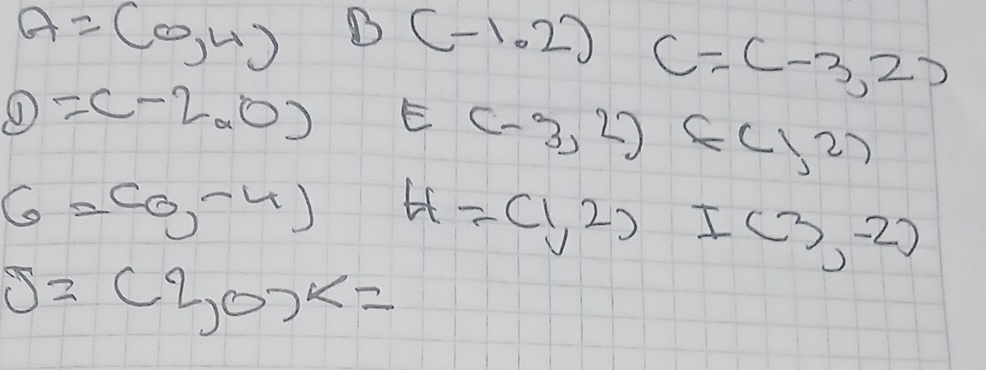 A = (0,4) B (-1.2) C = (-3,2)
D = (-2.0) E (-3,2) F (1,2)
G = (0,-4) H = (1,2) I (3,-2)
J = (2,0) K =